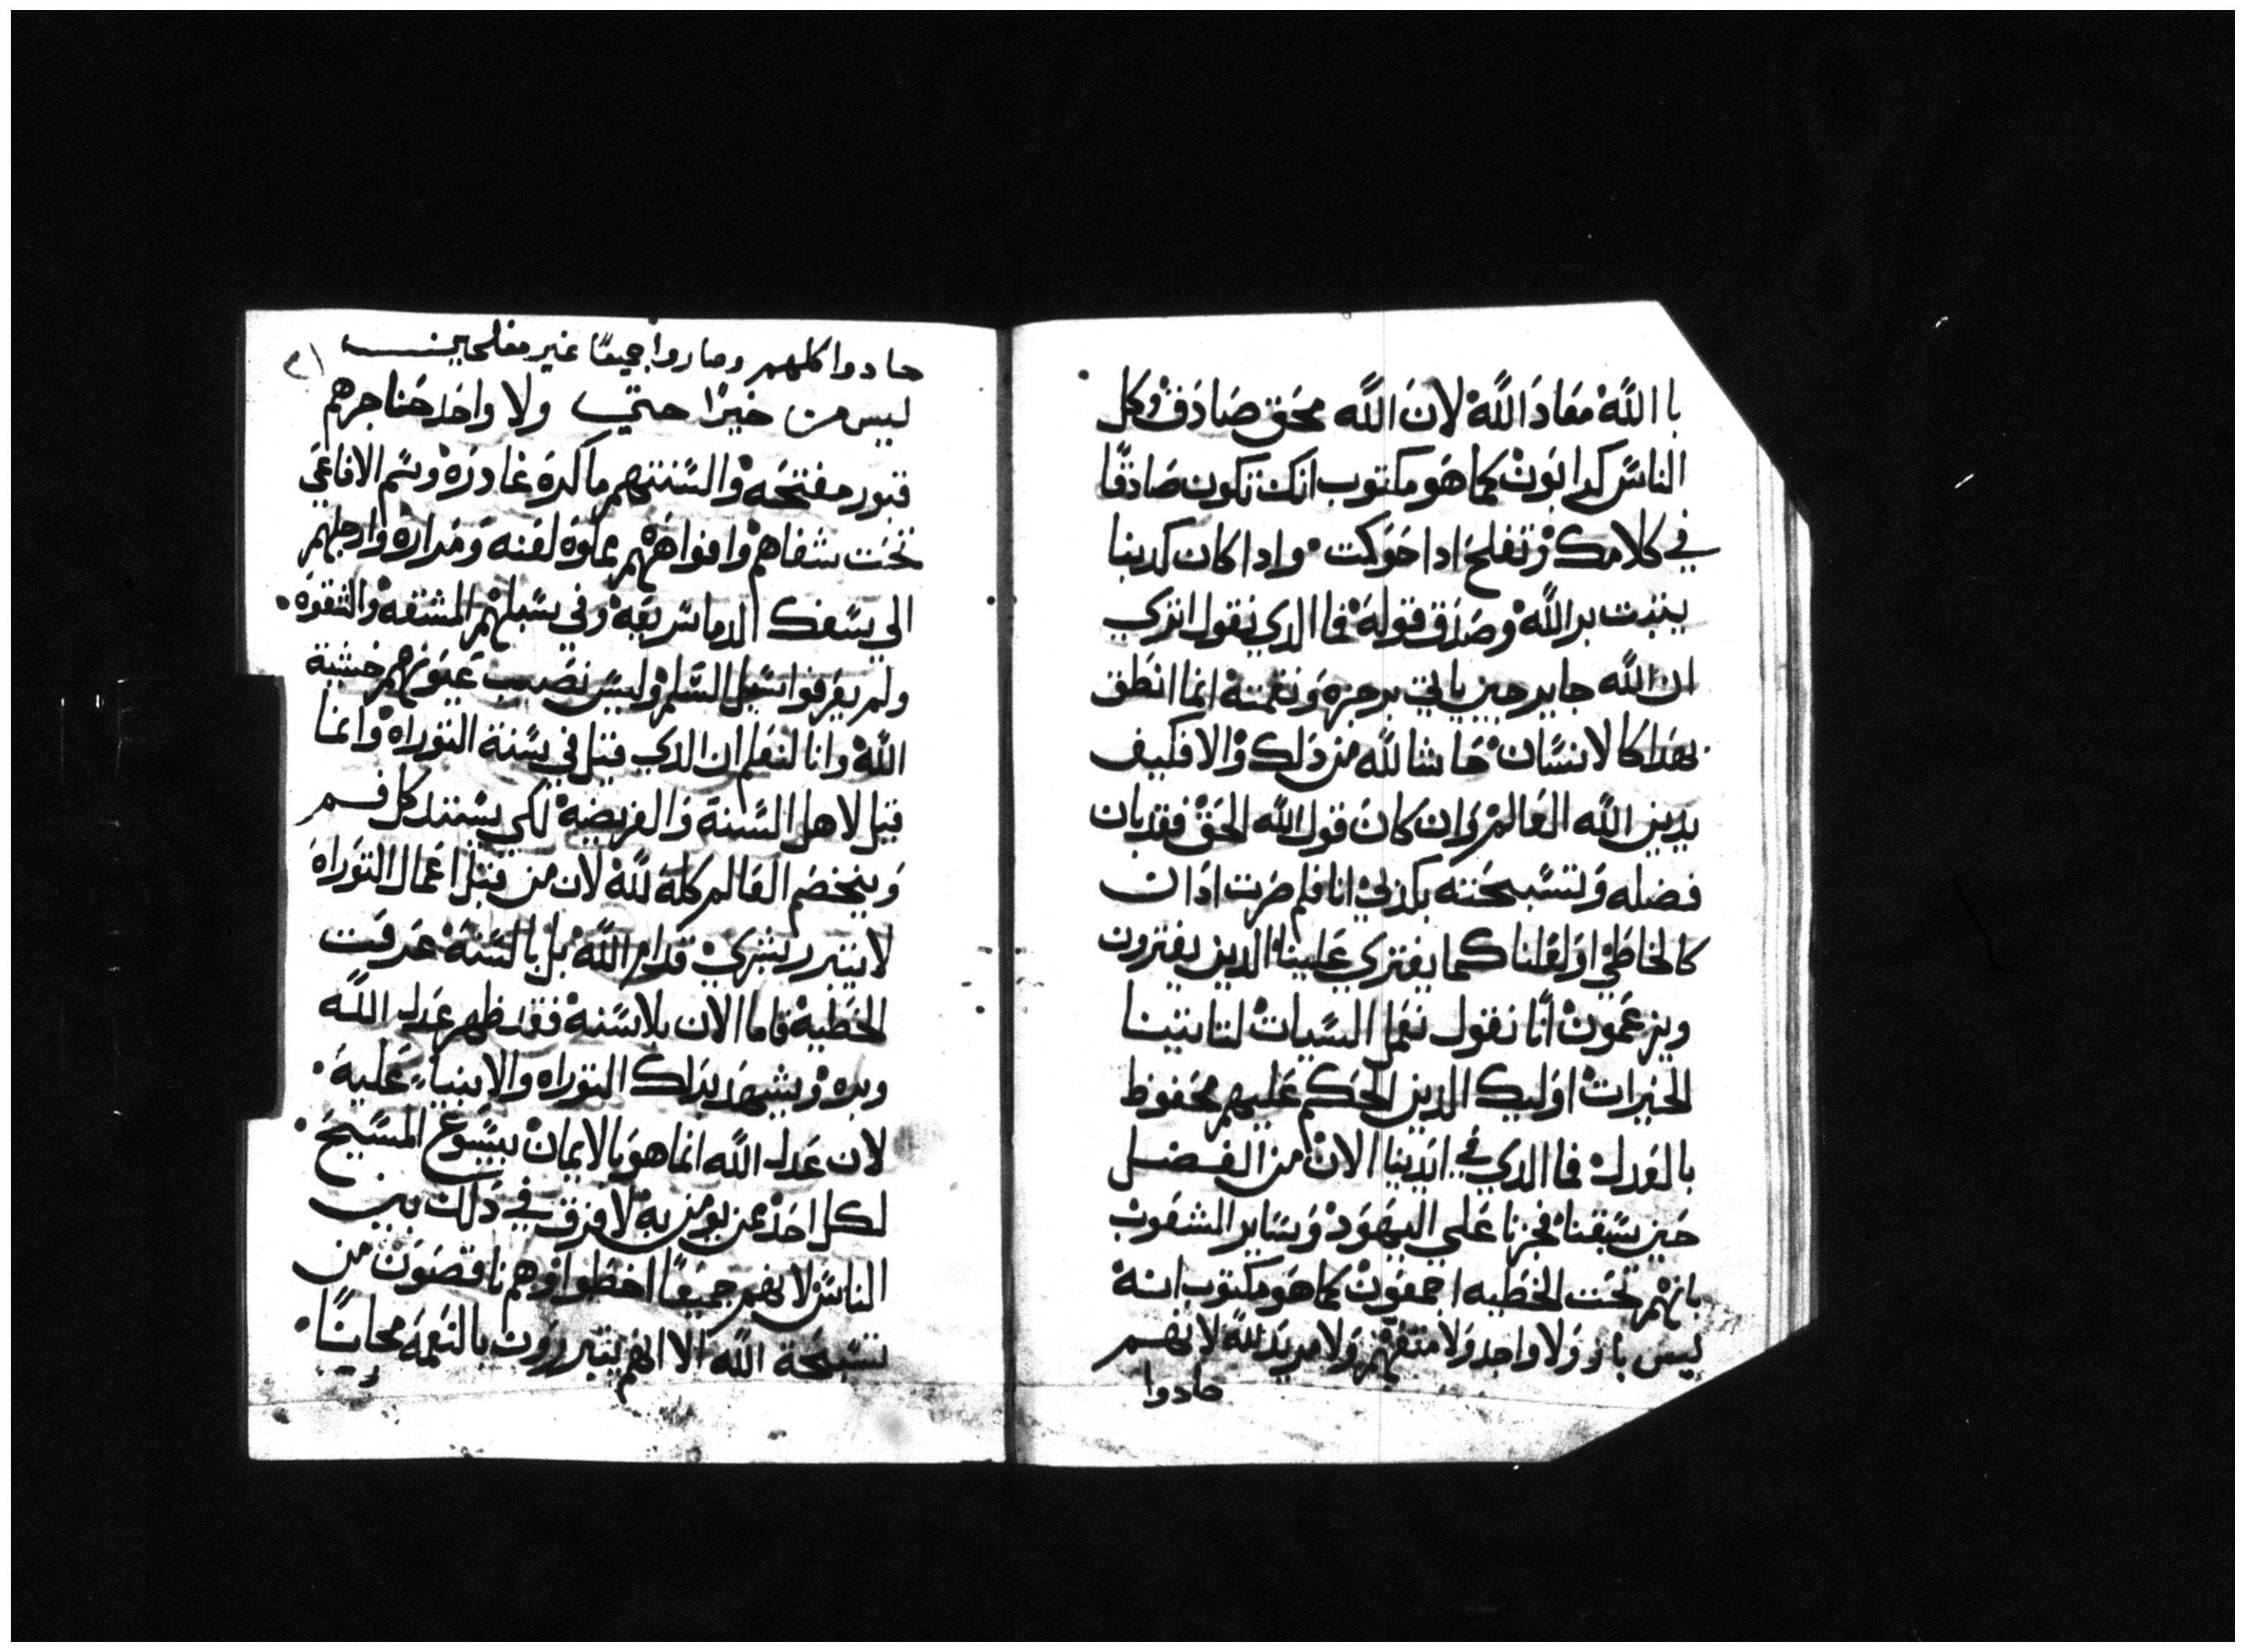 باالله معاد الله لان الله محق صادق وكل
الناس كدابون كما هو مكتوب انك تكون صادقا
في كلامك وتفلح ادا حوكمت واداكان كدبنا
يثبت بر الله وصدق قوله فما الدي نقول اتري
ان الله جاير حين ياتي برجزه ونقمته انما انطق
بهدا كالانسان حاشا لله من دلك والا فكيف
يدين الله العالم وان كان قول الله الحق فقد بان
فضله وتسبحته بكدبي انا فلم صرت ادان
كالخاطي اولعلنا كما يفتري علينا الدين يفترون
ويزعمون انا نقول نعمل السيات لتاتينا
الخيرات اوليك الدين الحكم عليهم محفوظ
بالعدل فما الدي في ايدينا الان من الفضل
حين سبقنا فجزنا علي اليهود وساير الشعوب
بانهم تحت الخطيه اجمعون كما هو مكتوب انه
ليس بار ولا واحد ولا متفهم ولا مريد لله لانهم
حادوا
٣١
حادوا كلهم وصاروا جميعا غير مفلحين
ليس من خيرا حتي ولا واحد حناجرهم
قبور مفتحه والسنتهم ماكره غادره وسم الافاعي
تحت شفاهم وافواههم مملوه لعنه ومراره وارجلهم
الي سفك الدما سريعه وفي سبلهم المشقه والشقوه
ولم يعرفوا سبيل السلم وليس نصب عيونهم خشية
الله وانا لنعلم ان الدي قيل في سنة التوراه وانما
قيل لاهل السنة والفريضة لكي يستد كل فم
ويخضع العالم كله لله لان من قبل اعمال التوراه
لا يتبرر بشري قدام الله بل بالسنة عرفت
الخطية فاما الان بلا سنة فقد ظهر عدل الله
وبره ويشهد بدلك التوراه والانبياء عليه
لان عدل الله انما هو بالايمان بيسوع المسيح
لكل احد ممن يومن به لا فرق في دلك بين
الناس لانهم جميعا اخطوا وهم ناقصون من
تسبحة الله الا انهم يتبررون بالنعمه مجانا